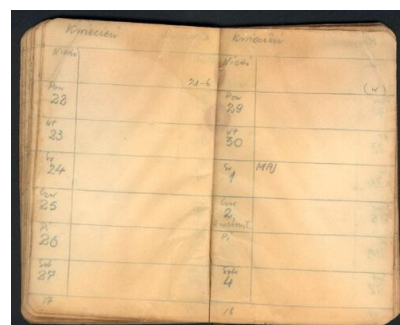 Kwiecień
Niedz
21-6
Pon
22
Wt
23
Śr
24
Czw
25
Pi
26
Sob
27
17
Kwiecień
Niedz
(w)
Pon
29
Wt
30
Śr
1 MAJ
Czw
2
Pi
Sob
4
18